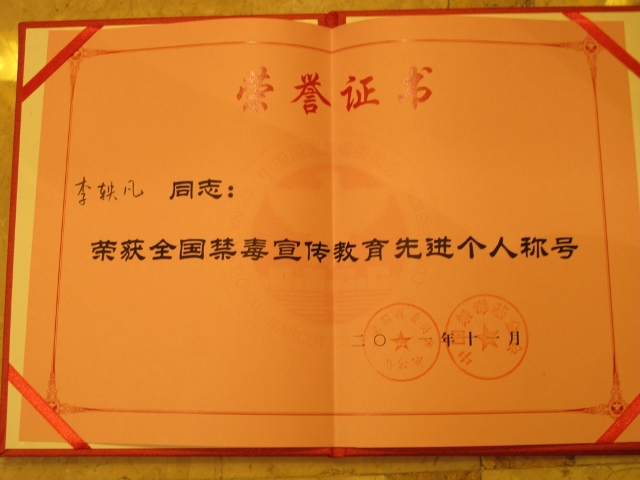 荣誉证书
李轶凡 同志：
荣获全国禁毒宣传教育先进个人称号
二〇一 年十一月